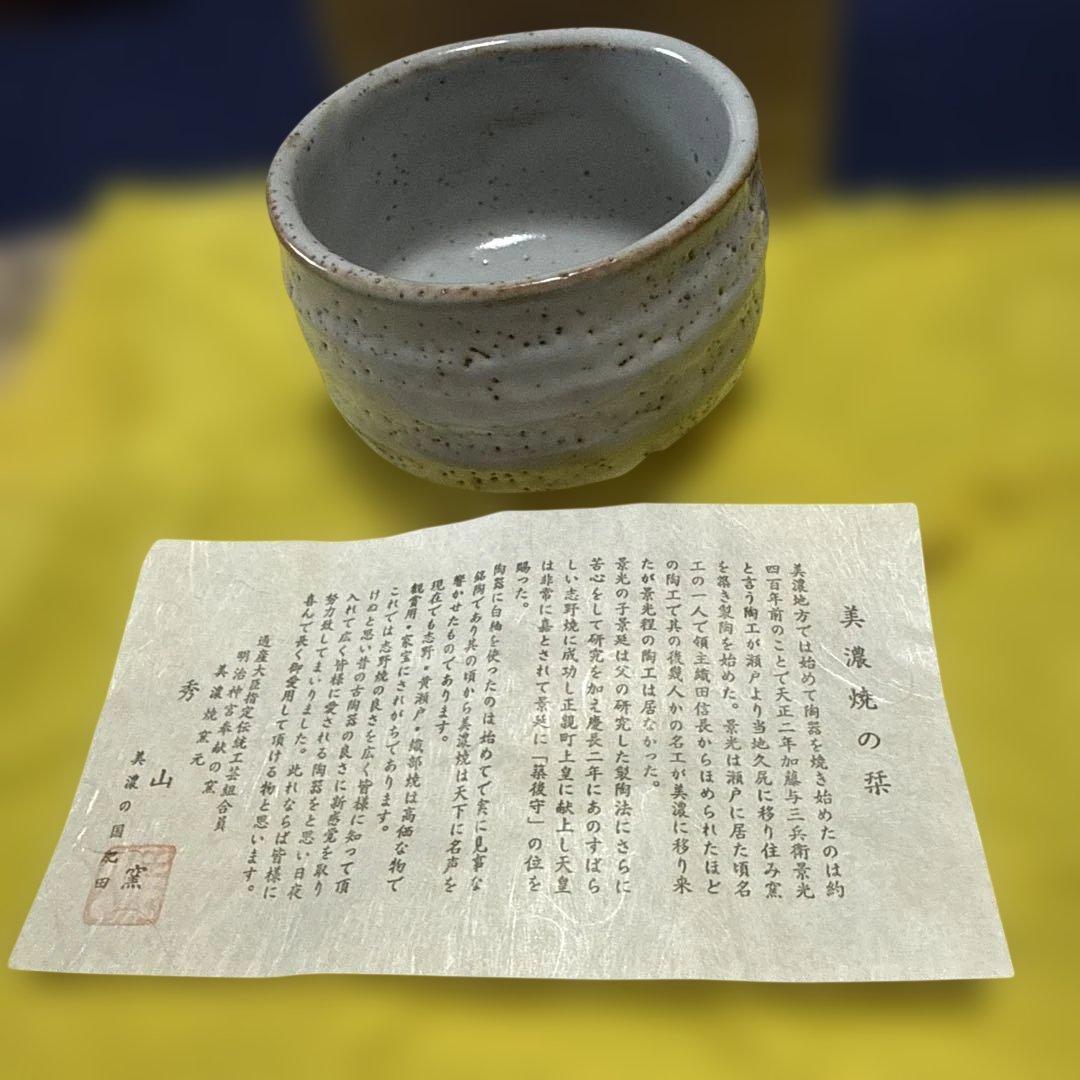 美濃焼の栞
美濃地方では始めて陶器を焼き始めたのは約
四百年前のことで天正二年加藤与三兵衛景光
と言う陶工が瀬戸より当地久尻に移り住み窯
を築き製陶を始めた。景光は瀬戸に居た頃名
工の一人で領主織田信長からほめられたほど
の陶工で其の後幾人かの名工が美濃に移り来
たが景光程の陶工は居なかった。
景光の子景延は父の研究した製陶法にさらに
苦心をして研究を加え慶長二年にあのすばら
しい志野焼に成功し正親町上皇に献上し天皇
は非常に嘉とされて景延に「築後守」の位を
賜った。
陶器に白釉を使ったのは始めてで実に見事な
銘陶であり其の頃から美濃焼は天下に名声を
響かせたものであります。
現在でも志野・黄瀬戸・織部焼は高価な物で
観賞用・家宝にされがちであります。
これでは志野焼の良さを広く皆様に知って頂
けぬと思い昔の古陶器の良さに新感覚を取り
入れて広く皆様に愛される陶器をと思い日夜
努力致してまいりました。此れならば皆様に
喜んで長く御愛用して頂ける物と思います。
通産大臣指定伝統工芸組合員
明治神宮奉献の窯
美濃焼窯元
秀山窯
美濃の国
田